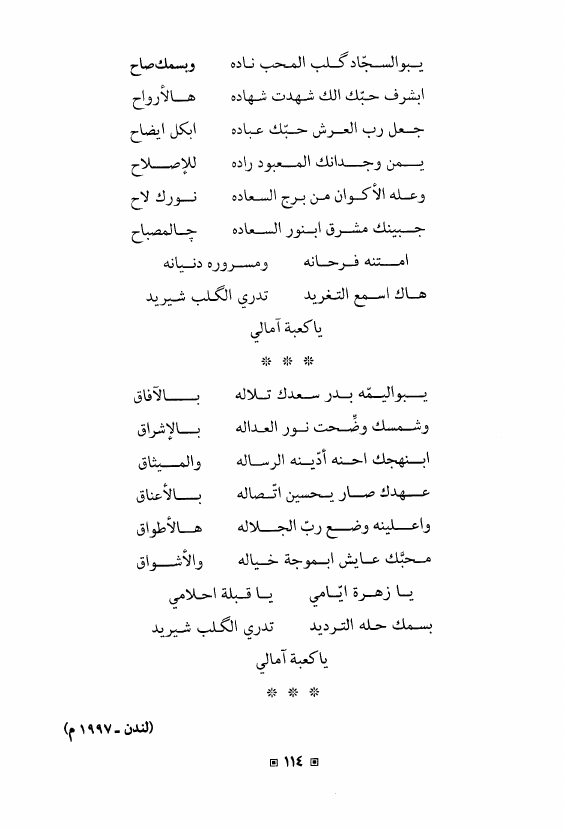 يبو السجّاد گلب المحب ناده وبسمك صاح
ابشرف حبّك الك شهدت شهاده هالأرواح
جعل رب العرش حبّك عباده ابكل ايضاح
يمن وجدانك المعبود راده للإصلاح
وعله الأكوان من برج السعاده نورك لاح
جبينك مشرق ابنور السعاده چالمصباح
امتنه فرحانه ومسروره دنيانه
هاك اسمع التغريد تدري الگلب شيريد
ياكعبة آمالي
* * *
يبو اليمّه بدر سعدك تلاله بالآفاق
وشمسك وضّحت نور العداله بالإشراق
ابنهجك احنه أدّينه الرساله والميثاق
عهدك صار يحسين اتّصاله بالأعناق
واعلينه وضع ربّ الجلاله هالأطواق
محبَّك عايش ابموجة خياله والأشواق
يا زهرة ايّامي يا قبلة احلامي
بسمك حله الترديد تدري الگلب شيريد
ياكعبة آمالي
* * *
(لندن - ١٩٩٧ م)
١١٤